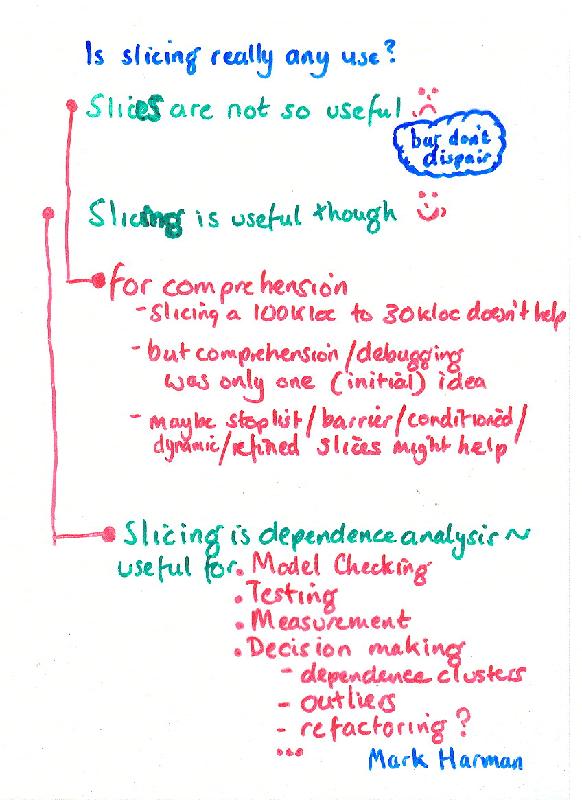 Is slicing really any use?
Slices are not so useful
but don't
dispair
Slicing is useful though
for comprehension
- slicing a 100Kloc to 30Kloc doesn't help
- but comprehension/debugging
was only one (initial) idea
- maybe stoplist/barrier/conditioned/
dynamic/refined slices might help
Slicing is dependence analysis ~
useful for • Model Checking
• Testing
• Measurement
• Decision making
- dependence clusters
- outliers
- refactoring?
...
Mark Harman